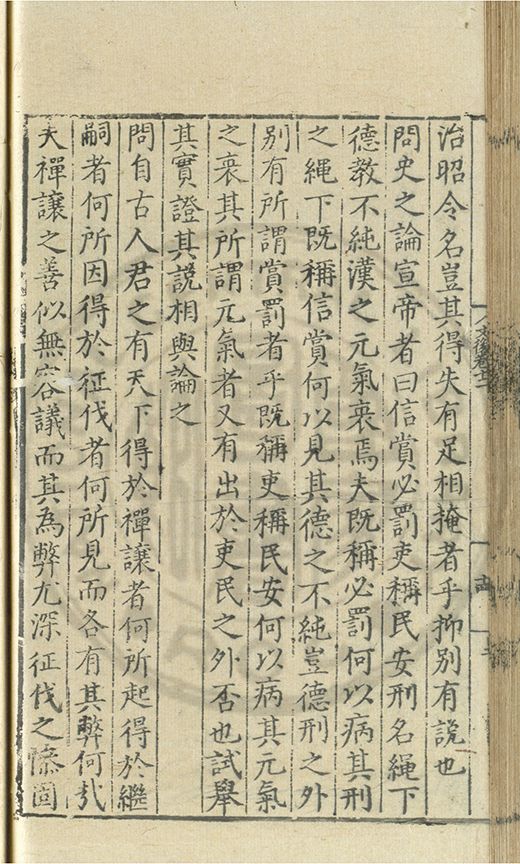 治昭令名豈其得失有足相掩者乎抑別有說也
問史之論宣帝者曰信賞必罰吏稱民安刑名繩下
德教不純漢之元氣衰焉夫既稱必罰何以病其刑
之繩下既稱信賞何以見其德之不純豈德刑之外
別有所謂賞罰者乎既稱吏稱民安何以病其元氣
之衰其所謂元氣者又有出於吏民之外否也試舉
其實證其說相與論之
問自古人君之有天下得於禪讓者何所起得於繼
嗣者何所因得於征伐者何所見而各有其弊何哉
夫禪讓之善似無容議而其為弊尤深征伐之慘固